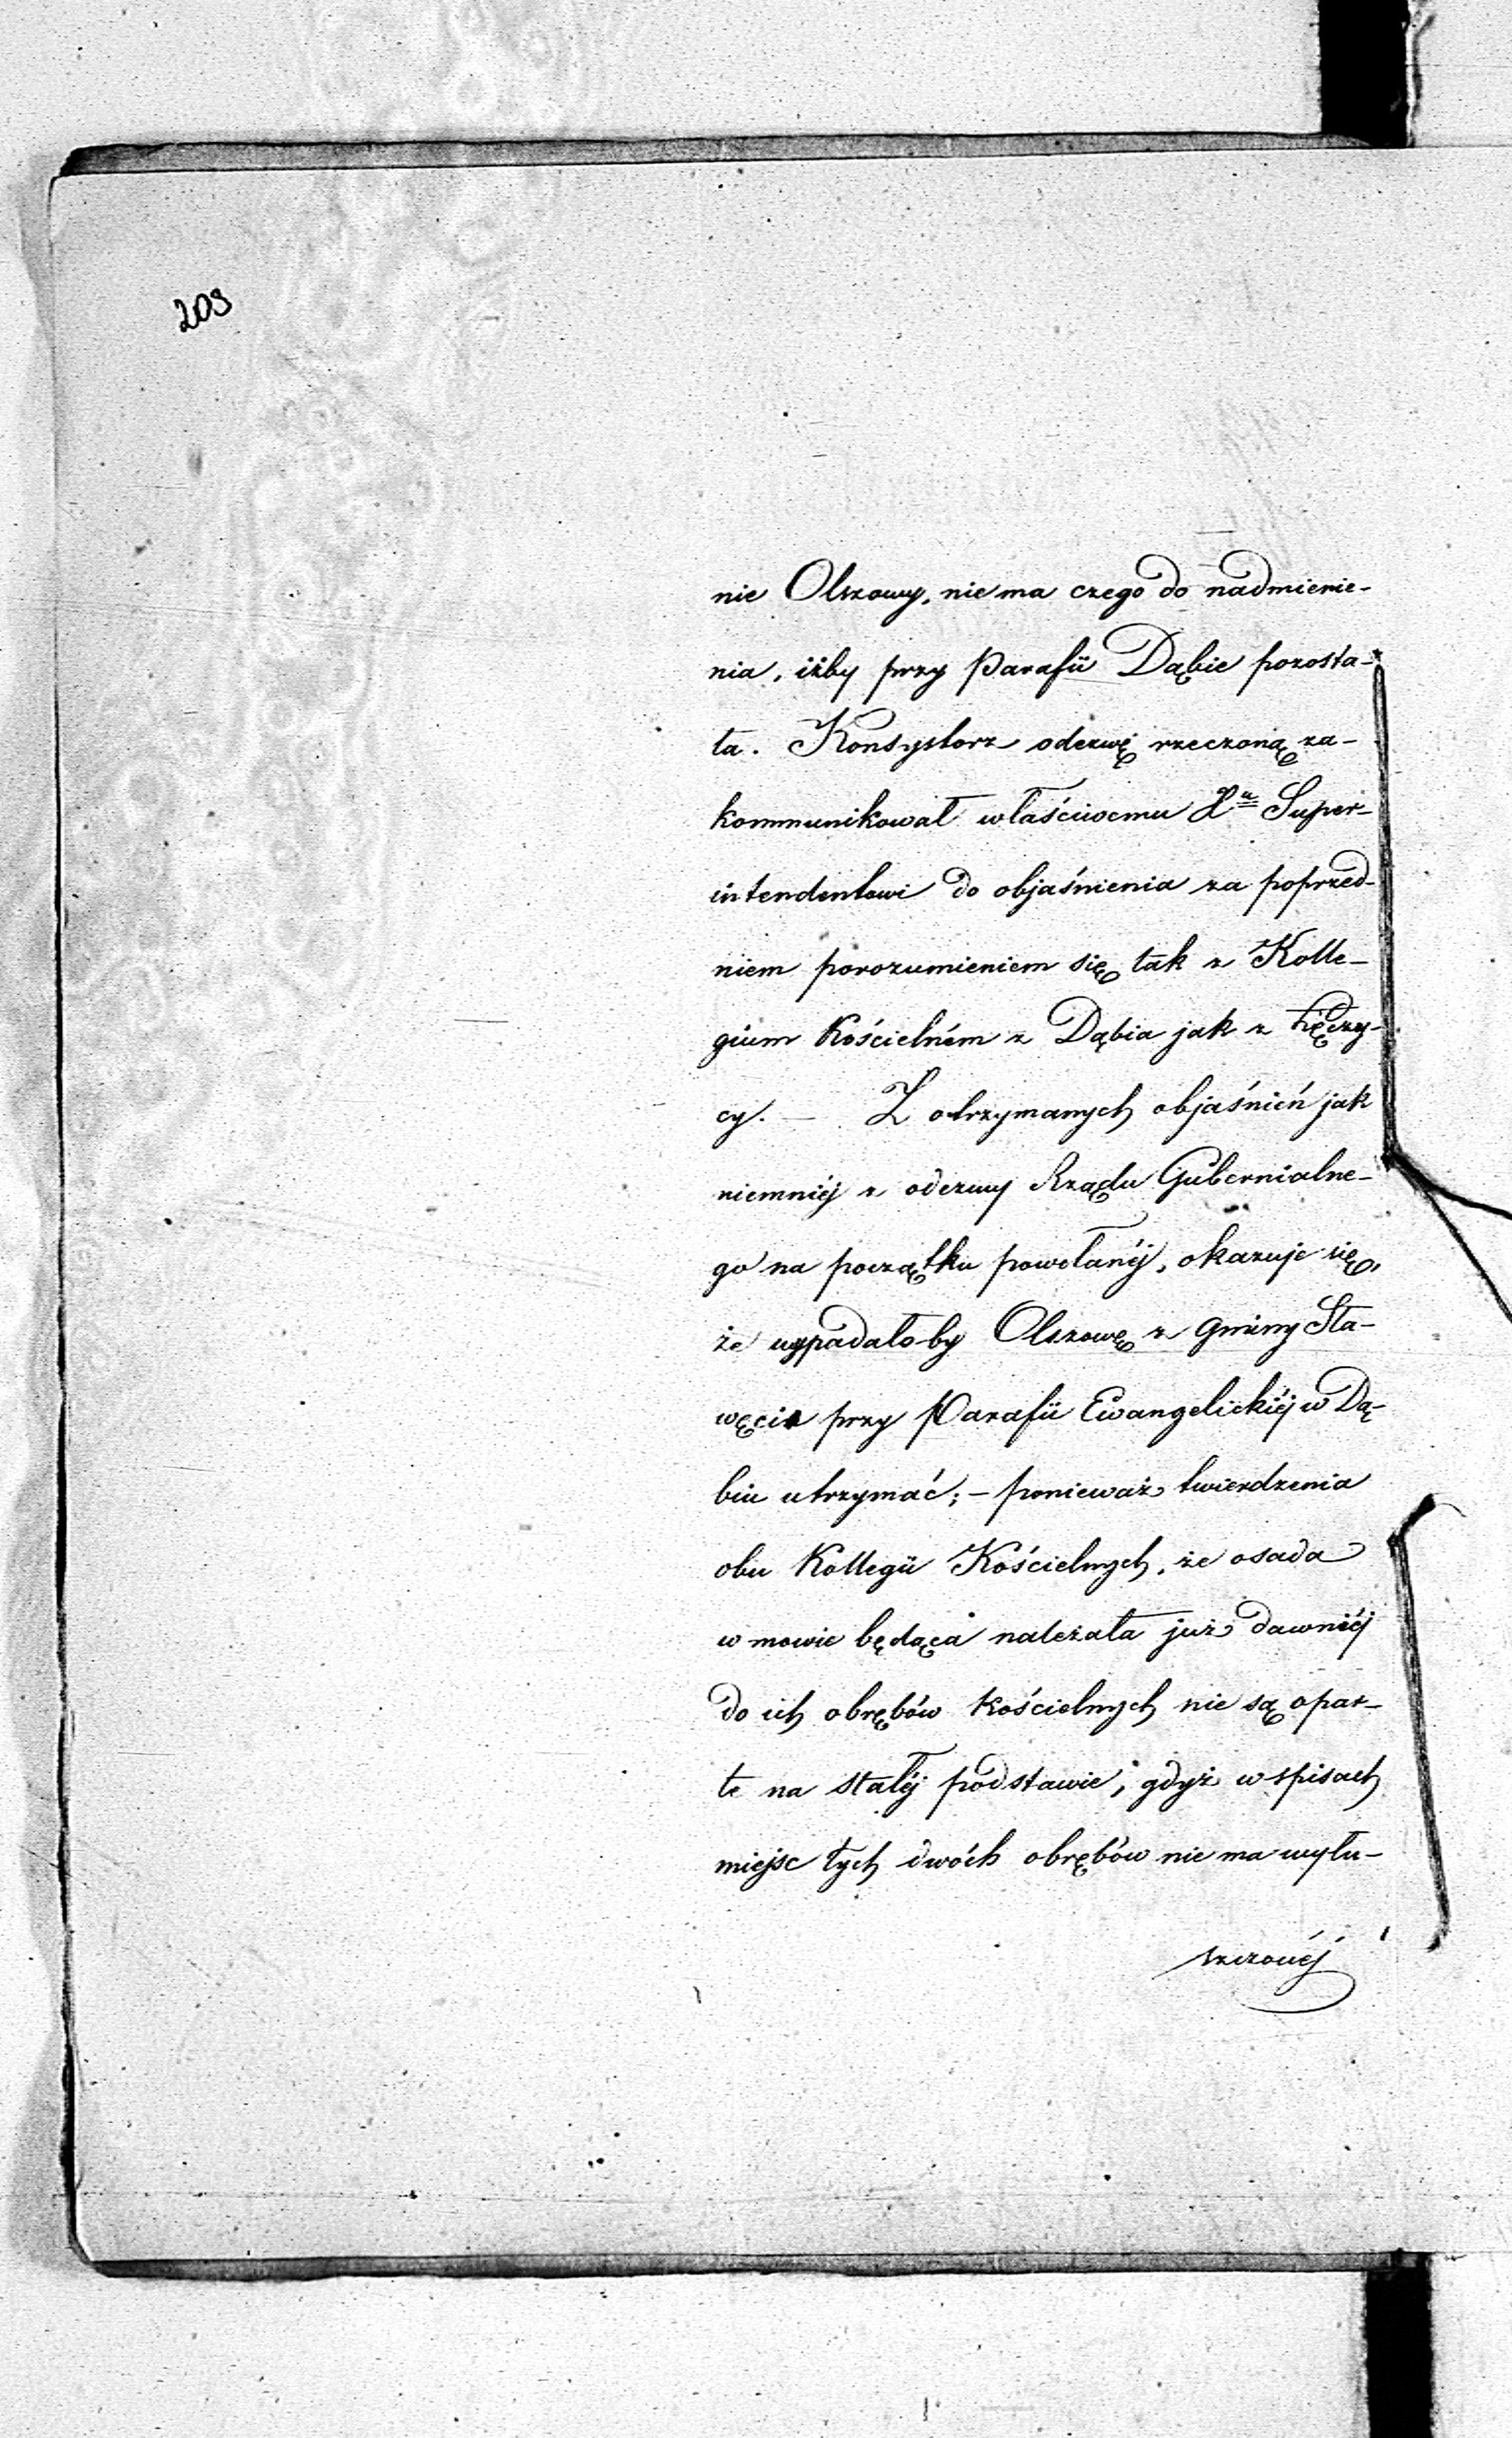 203
nie Olszowy, nie ma czego do nadmienie-
nia, iżby przy Parafii Dąbie pozosta-
ła. Konsystorz odezwę rzeczoną za-
kommunikował właściwemu Xu Super-
intendentowi do objaśnienia za poprzed-
niem porozumieniem się tak z Kolle-
gium Kościelném z Dąbia jak z Łęczy-
cy. — Z otrzymanych objaśnień jak
niemniéj z odezwy Rządu Gubernialne-
go na początku powołanéj, okazuje się,
że wypadało by Olszowę z Gminy Sła-
węcin przy Parafii Ewangelickiéj w Dą-
biu utrzymać; — ponieważ twierdzenia
obu Kollegii Kościelnych, że osada
w mowie będąca należała już dawniéj
do ich obrębów kościelnych nie są opar-
te na stałéj podstawie; gdyż w spisach
miejsc tych dwóch obrębów nie ma wyłu-
szczonéj